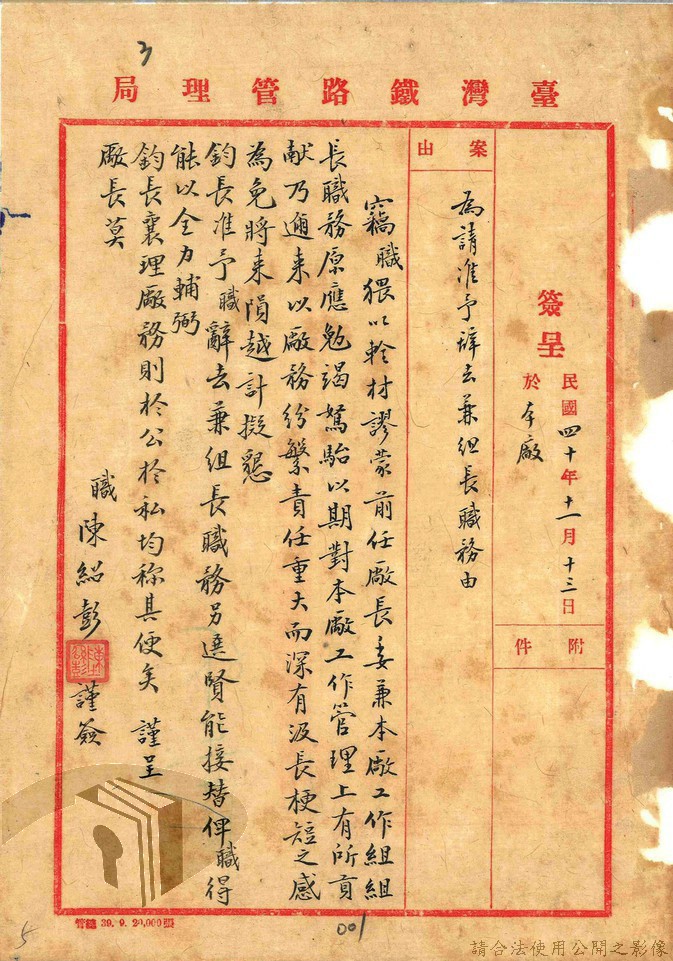 3
臺灣鐵路管理局
簽呈 民國四十年十一月十三日
於本廠
附件
案由
為請准予辭去兼組長職務由
竊職猥以輇材謬蒙前任廠長委兼本廠工作組組
長職務原應勉竭駑駘以期對本廠工作管理上有所貢
献乃邇来以廠務纷繁責任重大而深有汲長梗短之感
為免將来隕越計擬懇
鈞長准予職辭去兼组長職務另選賢能接替俾職得
能以全力輔弼
鈞長襄理廠務則於公於私均称其便矣 謹呈
廠長莫
職陳紹彭謹簽
管總 39.9.20,000張
001
5
請合法使用公開之影像